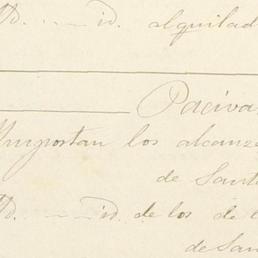 Yd. .... id. alquilad
Paciva
Importan los alcanze
de Sant
Yd. .... id. de los de l
de San